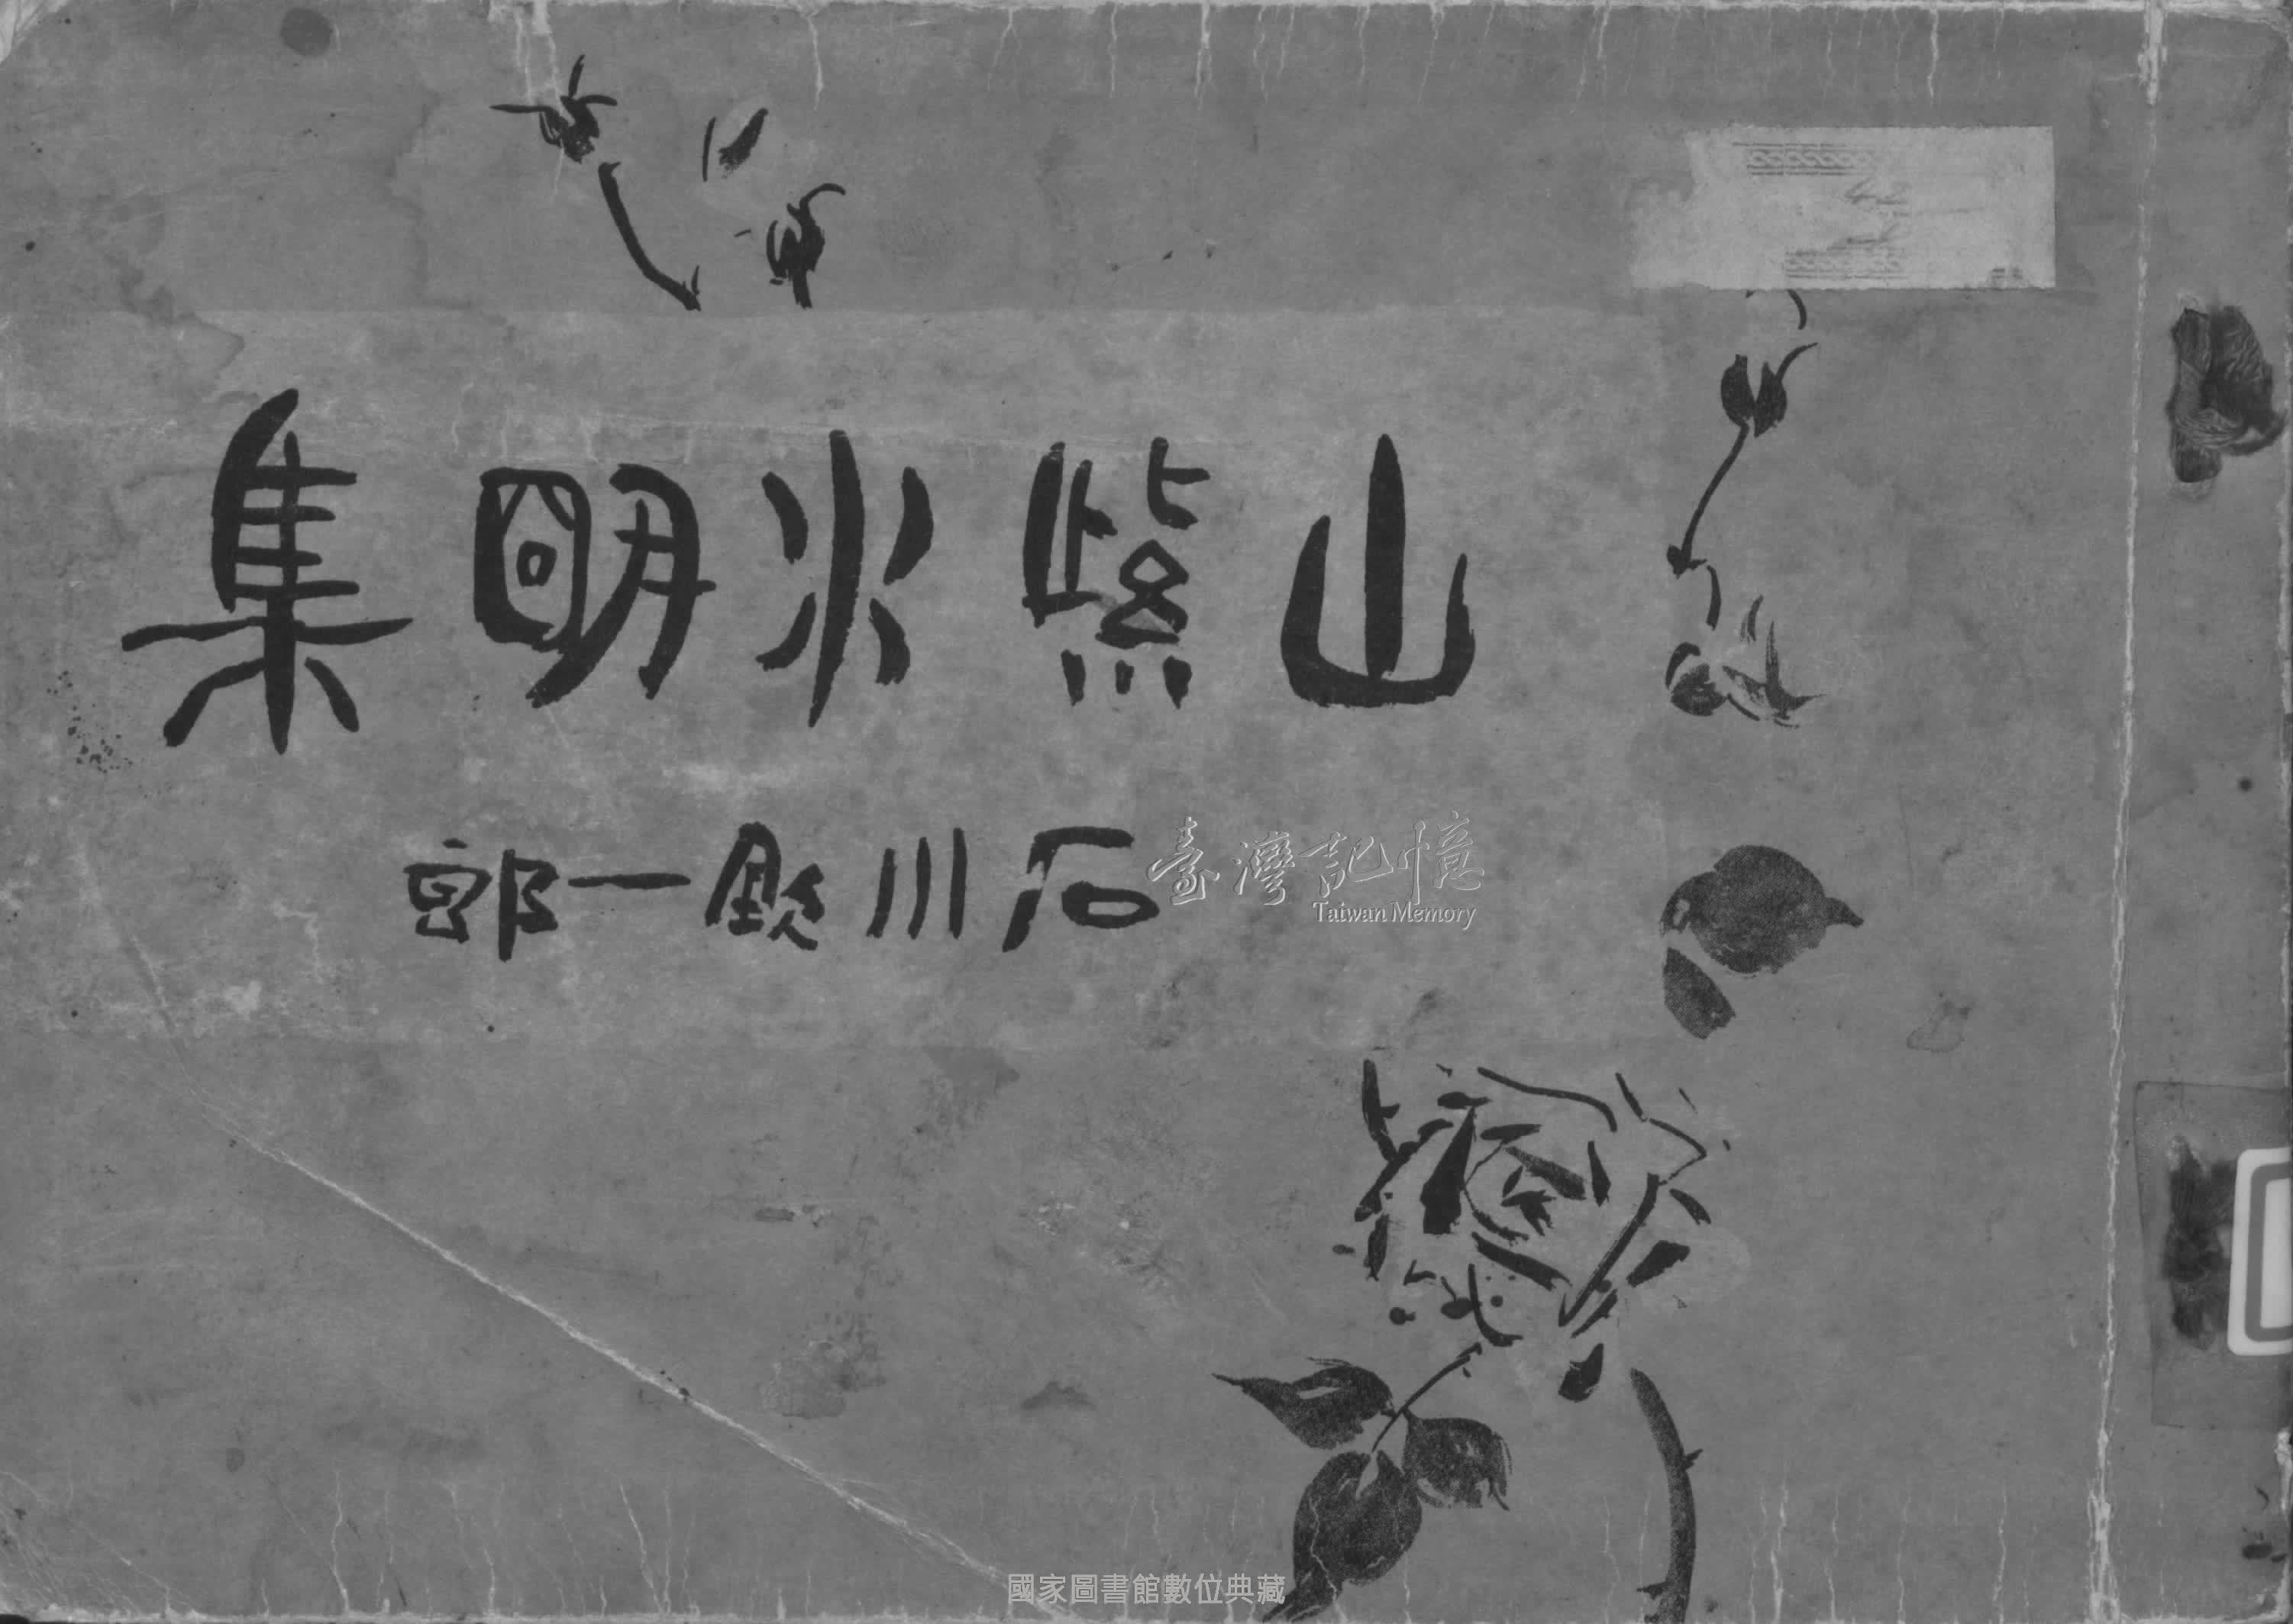 山紫水明集
石川欽一郎
臺灣記憶
Taiwan Memory
國家圖書館數位典藏